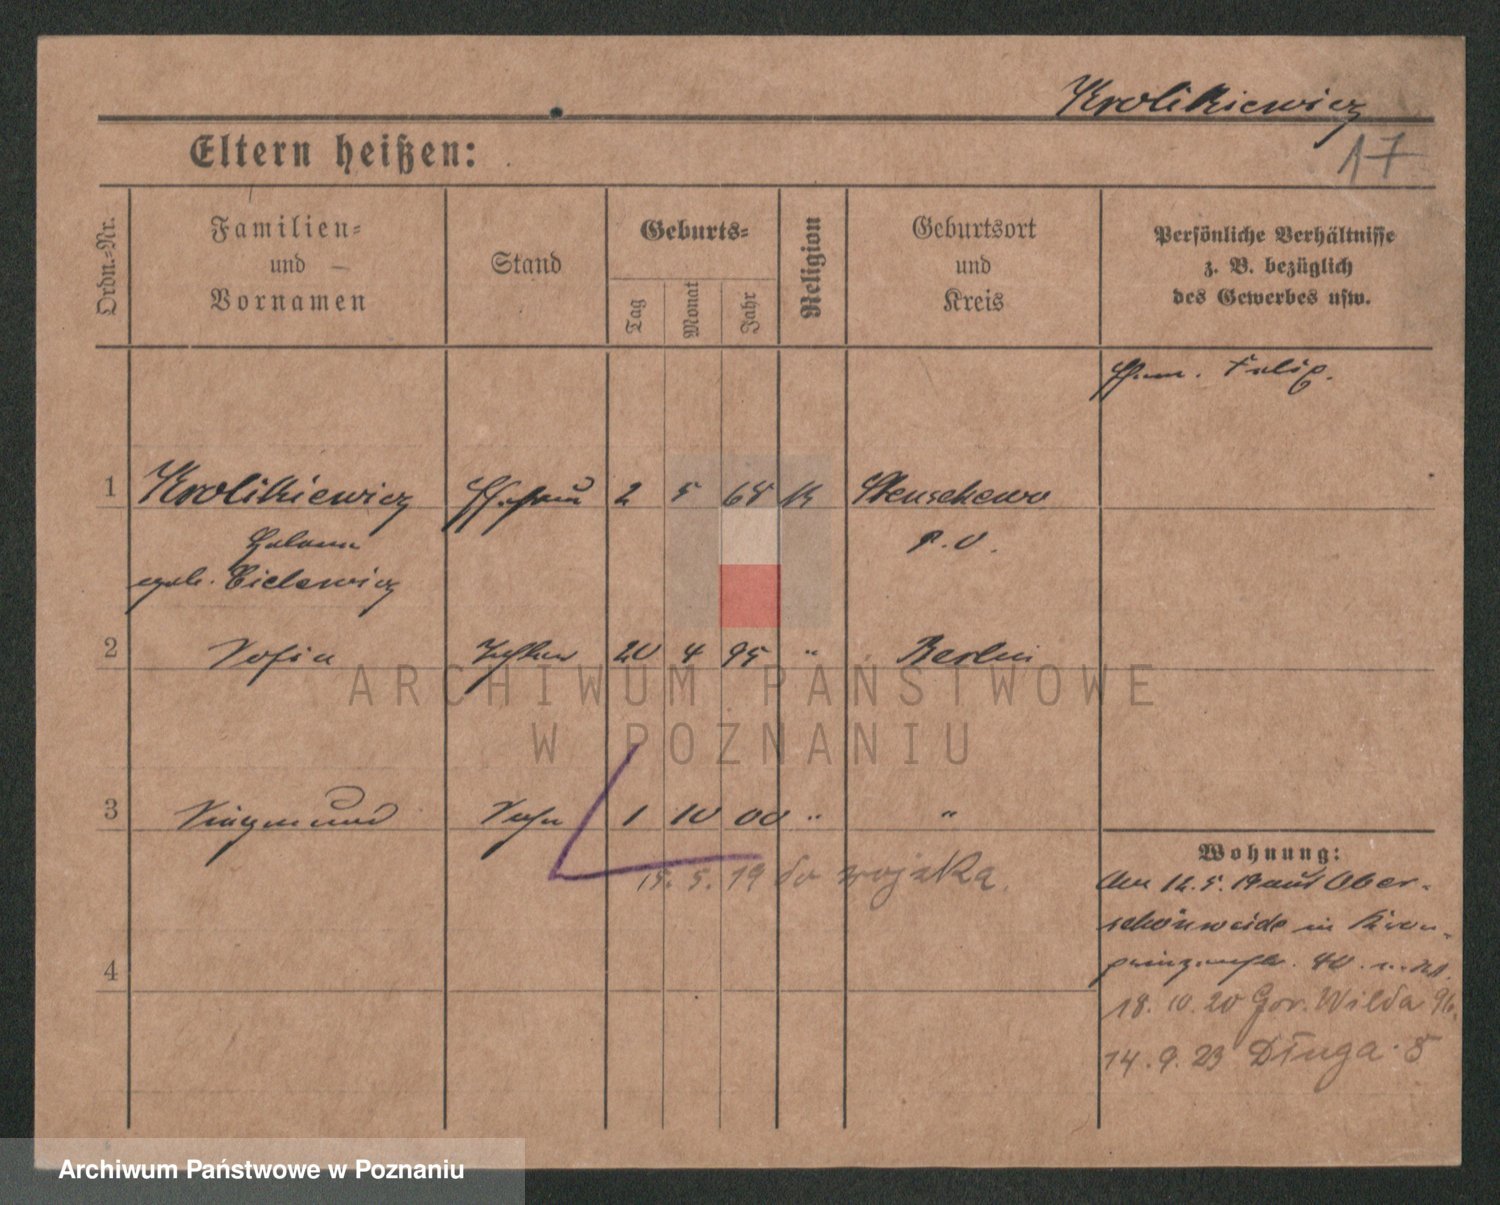 Krolikiewicz
17
Eltern heißen:
Ordn.-Nr.
Familien-
und
Vornamen
Stand
Geburts-
Tag
Monat
Jahr
Religion
Geburtsort
und
Kreis
Persönliche Verhältnisse
z. B. bezüglich
des Gewerbes usw.
Ehem. Felix.
1 Krolikiewicz Ehefrau 2 5 65 K Stenschewo
Helena P. O.
geb. Cielewicz
2 Sofia Tochter 20 4 95 " Berlin
ARCHIWUM PAŃSTWOWE
W POZNANIU
3 Siegmund Sohn 1 10 00 " "
15. 5. 19 do wojska.
4
Wohnung:
Am 12. 5. 19 aus Ober-
schönweide in Kron-
prinzenstr. 40
18. 10. 20 Gór. Wilda 96.
14. 9. 23 Długa 5
Archiwum Państwowe w Poznaniu